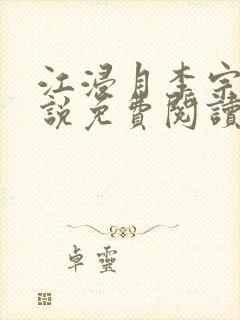 江浸月李宗
說免費閱讀
卓靈